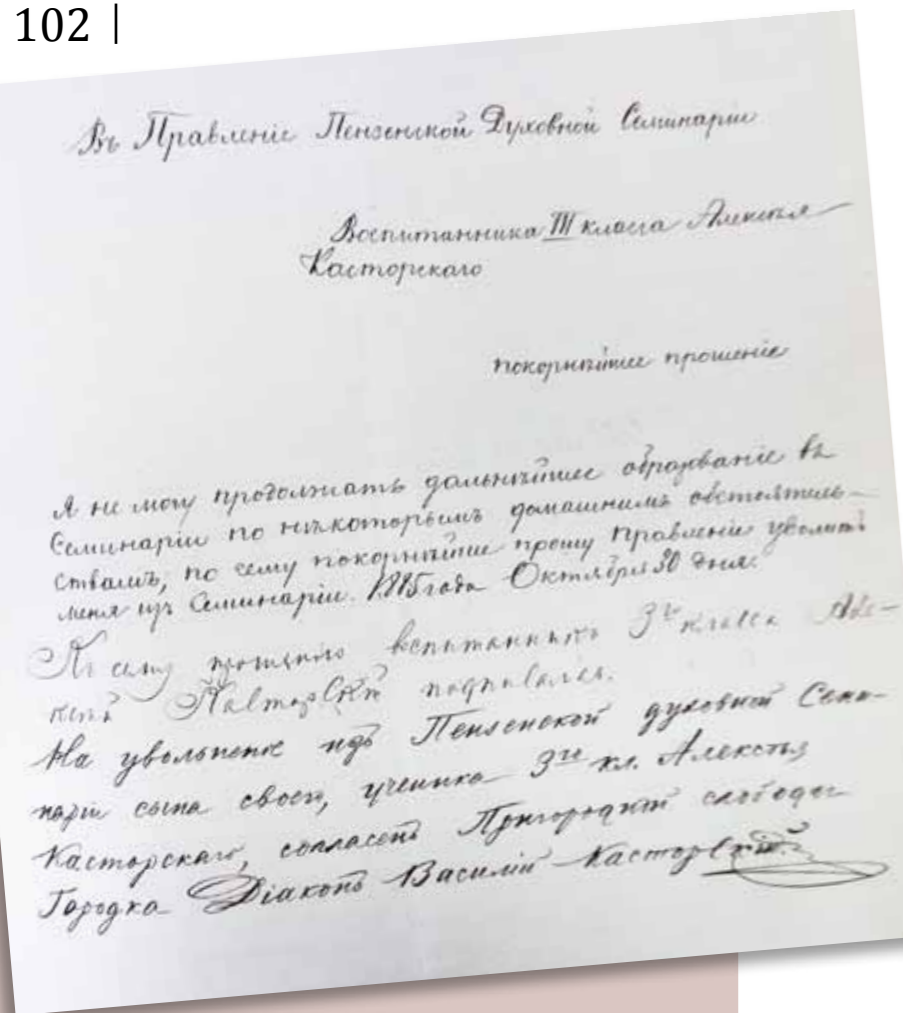 102 |
Въ Правленіе Пензенской Духовной Семинаріи
Воспитанника III класса Алексѣя
Касторскаго
покорнѣйшее прошеніе
Я не могу продолжать дальнѣйшее образованіе въ
Семинаріи по нѣкоторымъ домашнимъ обстоятель-
ствамъ, по сему покорнѣйше прошу Правленіе уволить
меня изъ Семинаріи. года Октября 30 дня.
Къ сему прошенію воспитанникъ 3го класса Але-
ксѣй Касторскій подписался.
На увольненіе изъ Пензенской духовной Семи-
наріи сына своего, ученика 3го кл. Алексѣя
Касторскаго, согласенъ Пригородной слободы
Городка Діаконъ Василій Касторскій.